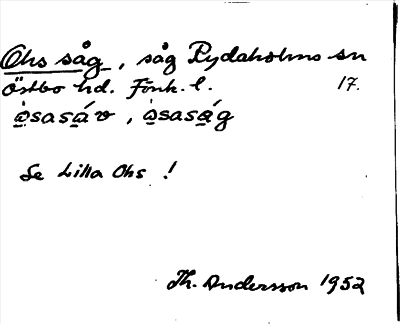 Ohs såg, såg Rydaholms sn
Östbo hd. Jönk. l. 17.
o̱̊sasá̱v, o̱̊sasá̱g
Se Lilla Ohs !
Th. Andersson 1952